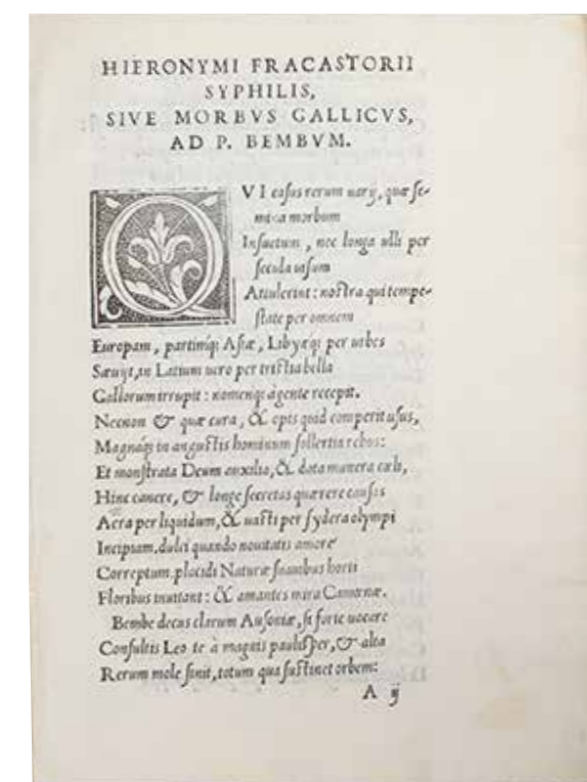 HIERONYMI FRACASTORII
SYPHILIS,
SIVE MORBVS GALLICVS,
AD P. BEMBVM.
QVI casus rerum uarij, quæ se-
mina morbum
Insuetum, nec longa ulli per
secula uisum
Attulerint: nostra qui tempe-
state per omnem
Europam, partimq; Asiæ, Libyæq; per urbes
Sæuijt, in Latium uero per tristia bella
Gallorum irrupit: nomenq; à gente recepit.
Necnon & quæ cura, & opis quid comperit usus,
Magnaq; in angustis hominum sollertia rebus:
Et monstrata Deum auxilia, & data munera cæli,
Hinc canere, & longe secretas quærere causas
Aera per liquidum, & uasti per sydera olympi
Incipiam. dulci quando nouitatis amore
Correptum. placidi Naturæ suauibus horti
Floribus inuitant: & amantes mira Camœnæ.
Bembe decus clarum Ausoniæ, si forte uocare
Consultis Leo te à magnis paulisper, & alta
Rerum mole sinit, totum qua sustinet orbem:
A ij